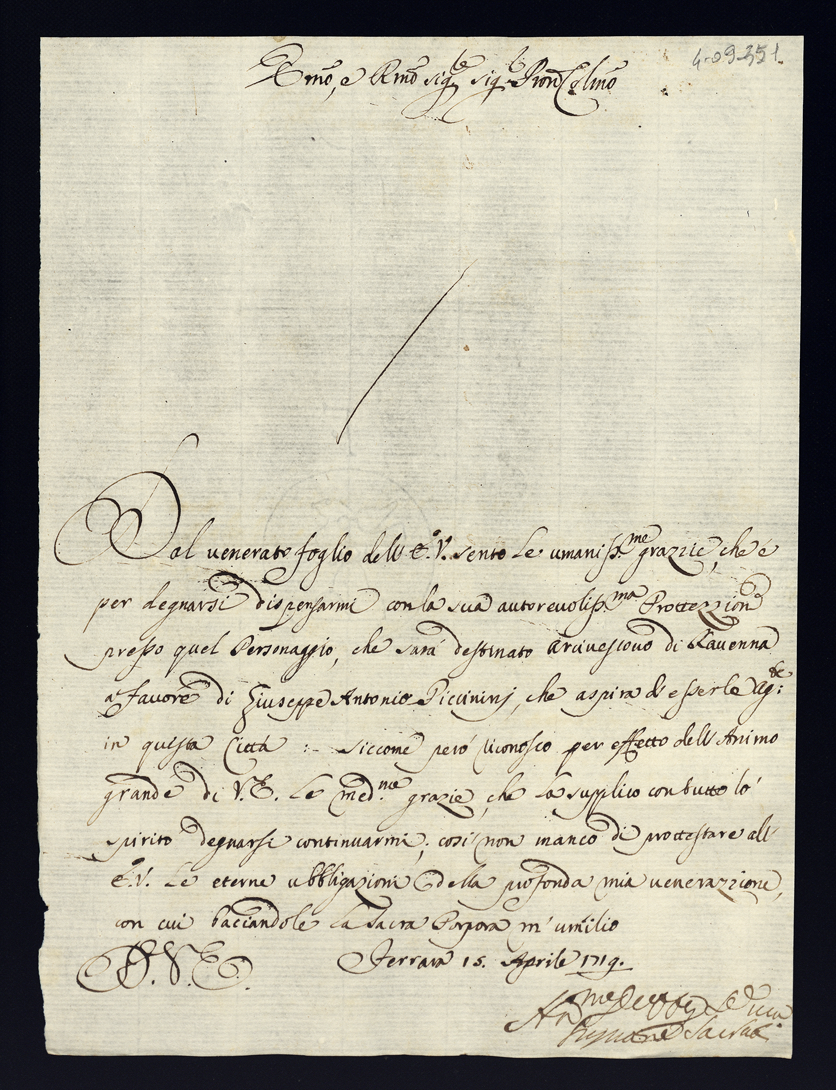 4-09-351.
Emo, e Rmo Sigre Sigre Pron Colmo
Dal venerato foglio dell' E.V. sento le umaniss.me grazzie, che è
per degnarsi dispensarmi con la sua autorevoliss.ma Prottezzione
presso quel Personaggio, che sarà destinato Arcivescovo di Ravenna
a favore di Giuseppe Antonio Piccininj, che aspira d'esserle Ag.te
in questa Città: Siccome però riconosco per effetto dell'Animo
grande di V.E. le med.me grazie, che la supplico con tutto lo
spirito degnarsi continuarmi; così non manco di prottestare all'
E.V. le eterne obbligazioni e della profonda mia venerazzione,
con cui baciandole la Sacra Porpora m' umilio
D.V.E. Ferrara 15. Aprile 1719.